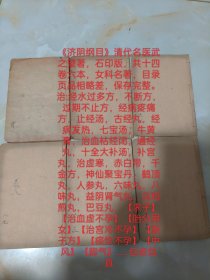 《济阴纲目》清代名医武
之望著，石印版，共十四
卷六本，女科名著，目录
页品相略差，保存完整。
治:经水过多方，不断方，
过期不止方，经病疼痛
方，止经汤，古经丸，经
病发热，七宝汤，牛黄
膏，治血枯经闭，通经
丸，十全大补汤，补宫
丸，治虚寒，赤白带，千
金方，神仙聚宝丹，鹤顶
丸，人参丸，六味丸，八
味丸，益阴肾气丸，
煎丸，巴豆丸，【求子】
【治血虚不孕】
【治宫冷不孕】
子方】
风】